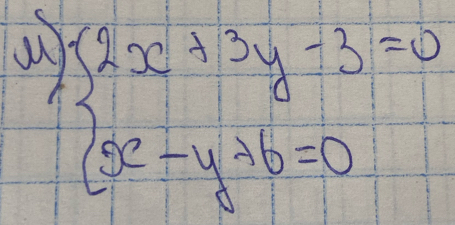 м) { 2x + 3y - 3 = 0
x - y + 6 = 0